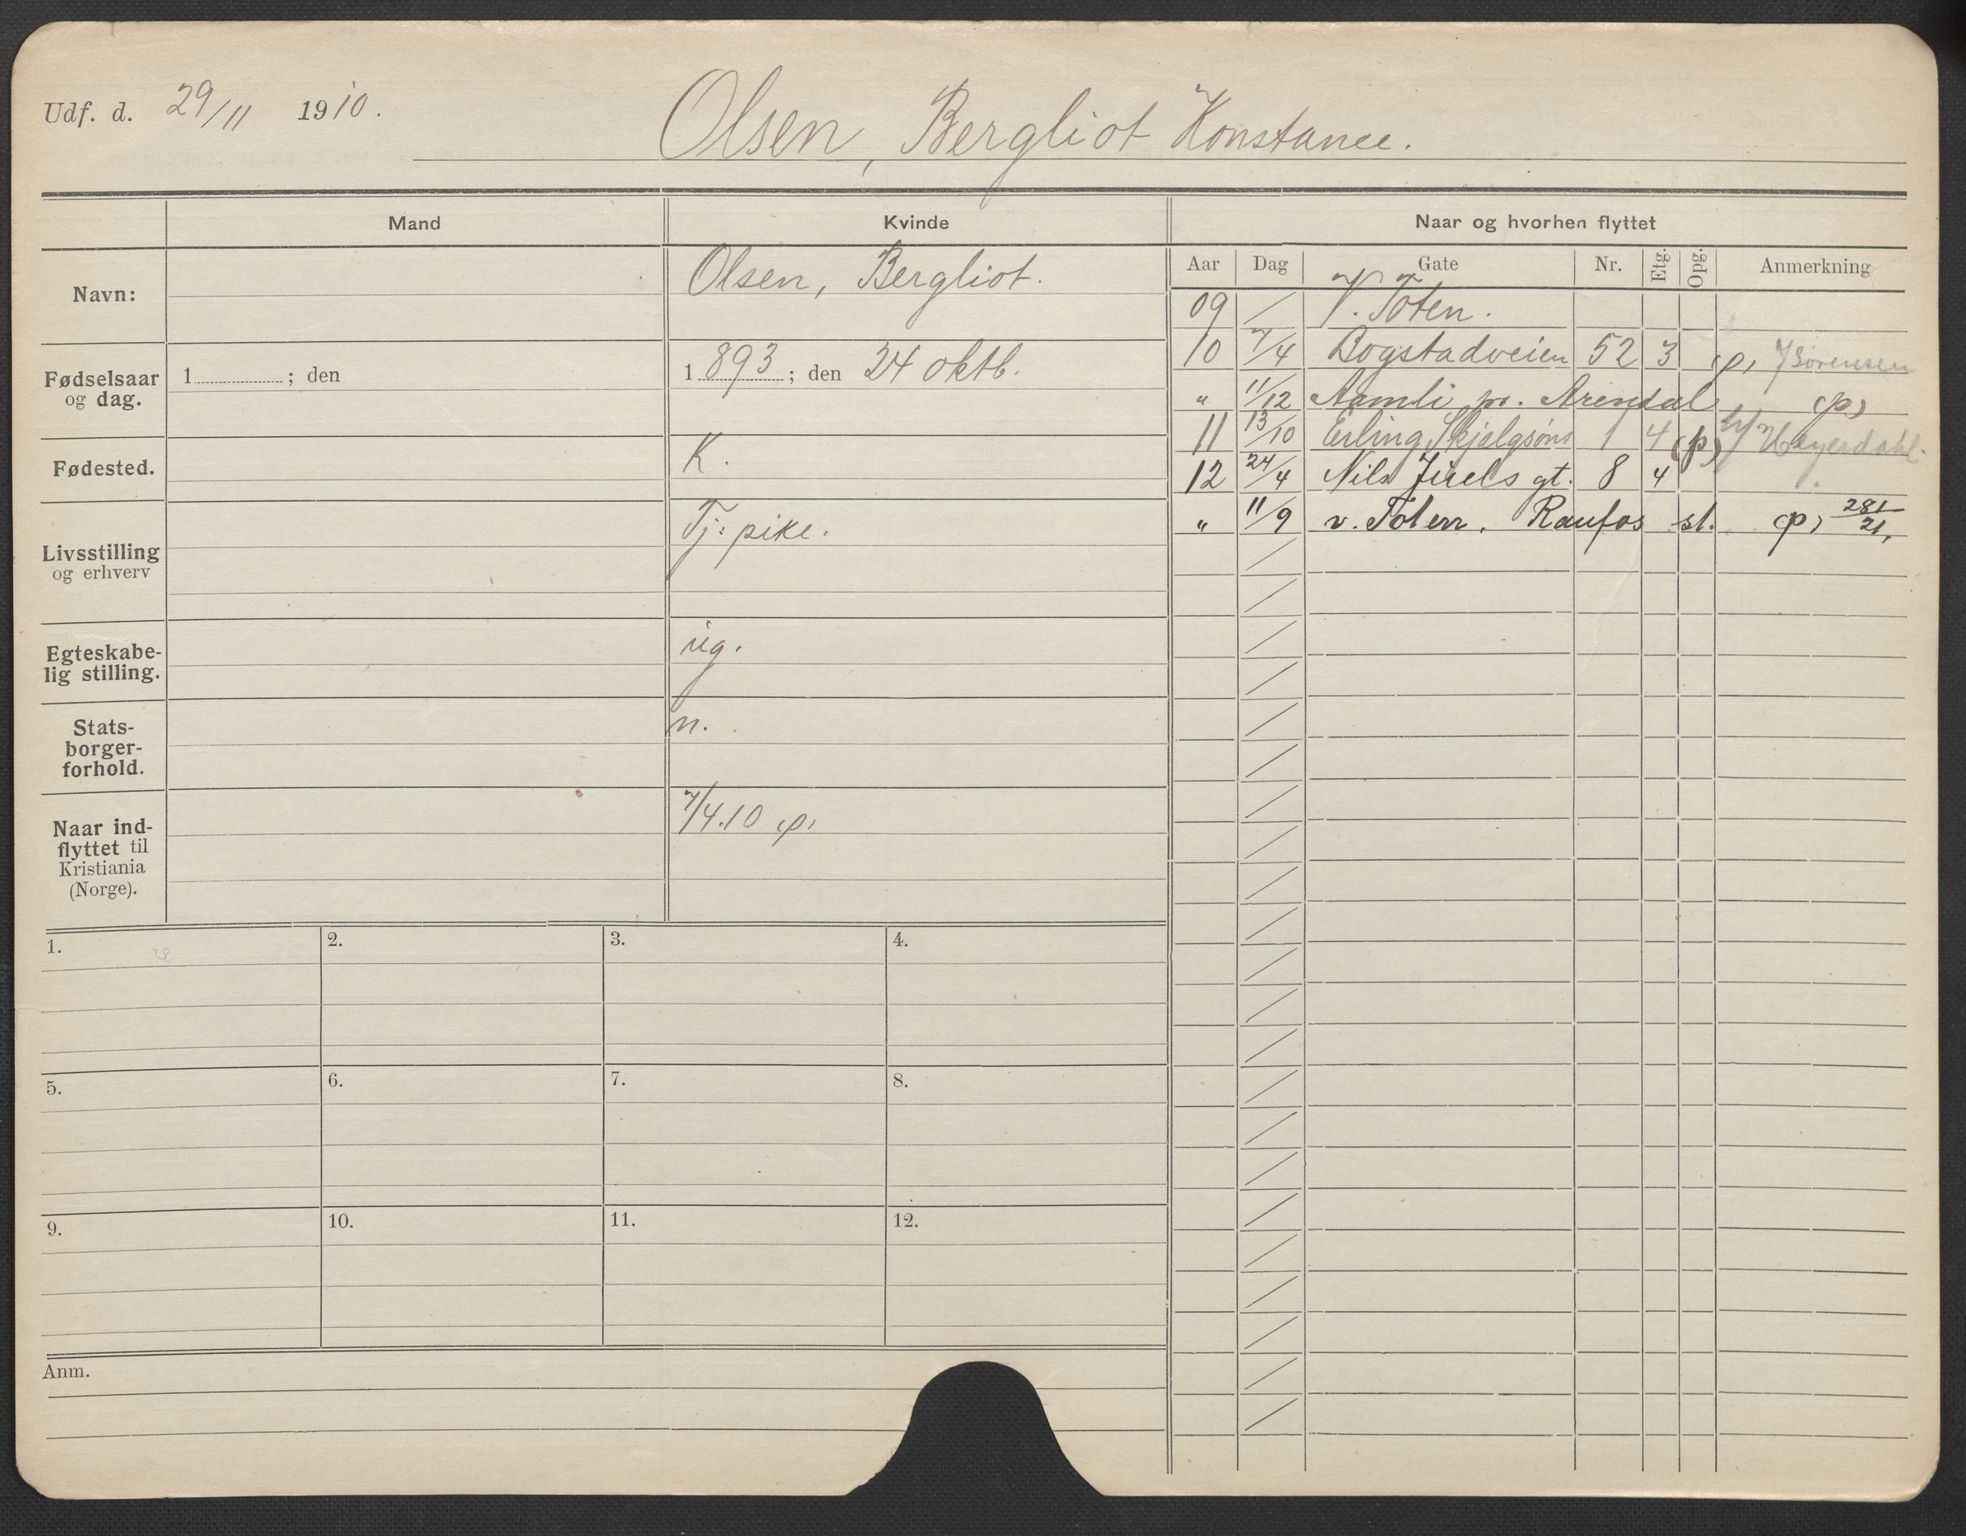 Udf. d. 29/11 1910.
Olsen, Bergliot Konstance.
Mand
Kvinde
Naar og hvorhen flyttet
Navn:
Olsen, Bergliot.
Aar Dag Gate Nr. Etg. Opg. Anmerkning
09 / V. Toten.
10 7/4 Bogstadveien 52 3 (p) / Sørensen
" 11/12 Aamli pr. Arendal (p)
11 13/10 Erling Skjalgsøns 1 4 (p) Heyerdahl.
12 24/4 Nils Juels gt. 8 4
" 11/9 v. Toten, Raufos st. (p) 281/21,
Fødselsaar og dag.
1 ; den
1893; den 24 oktb.
Fødested.
K.
Livsstilling og erhverv
Tj: pike.
Egteskabe-
lig stilling.
ug.
Stats-
borger-
forhold.
n.
Naar ind-
flyttet til
Kristiania
(Norge).
7/4.10 (p)
1. 2. 3. 4.
5. 6. 7. 8.
9. 10. 11. 12.
Anm.